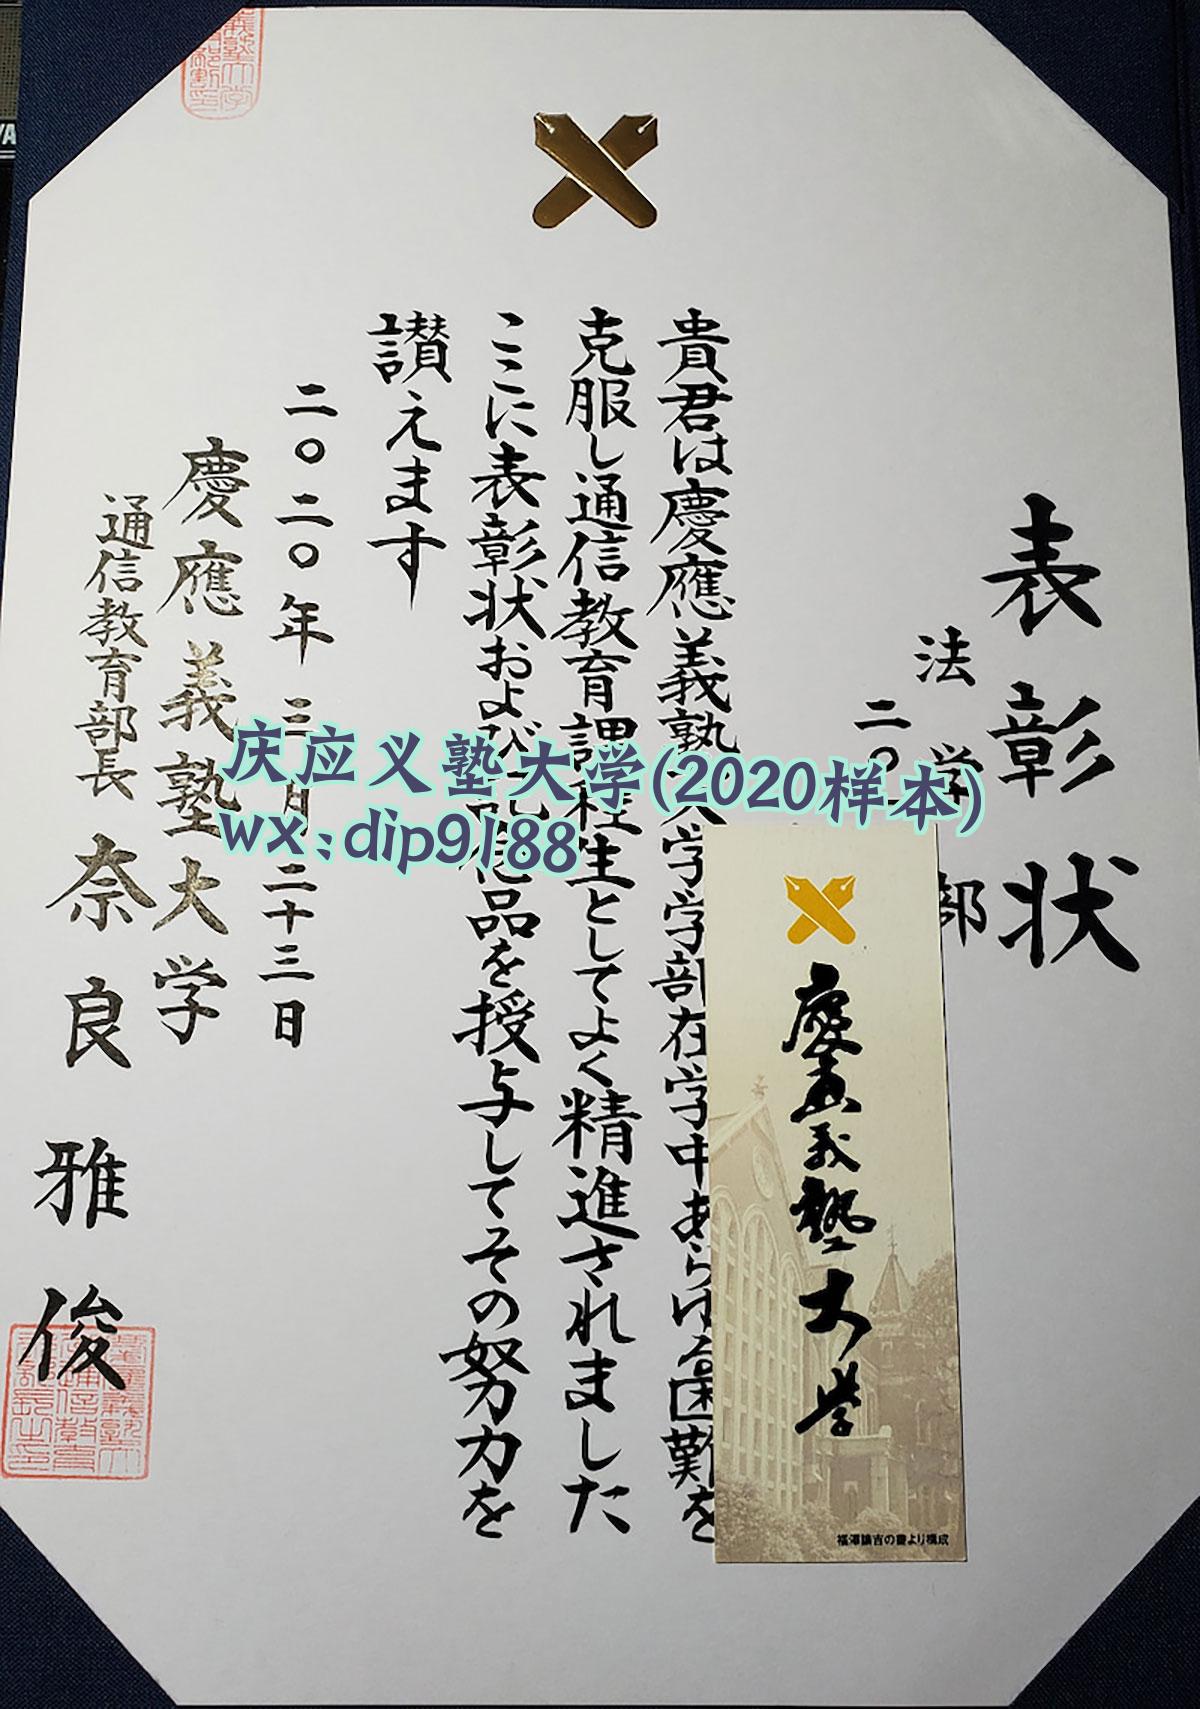 表彰状
法学部
二〇
貴君は慶應義塾大学学部在学中あらゆる困難を
克服し通信教育課程生としてよく精進されました
ここに表彰状および記念品を授与してその努力を
讃えます
二〇二〇年三月二十三日
慶應義塾大学
通信教育部長 奈良雅俊
庆应义塾大学(2020样本)
wx:dip9188
慶應義塾大学
福澤諭吉の書より構成